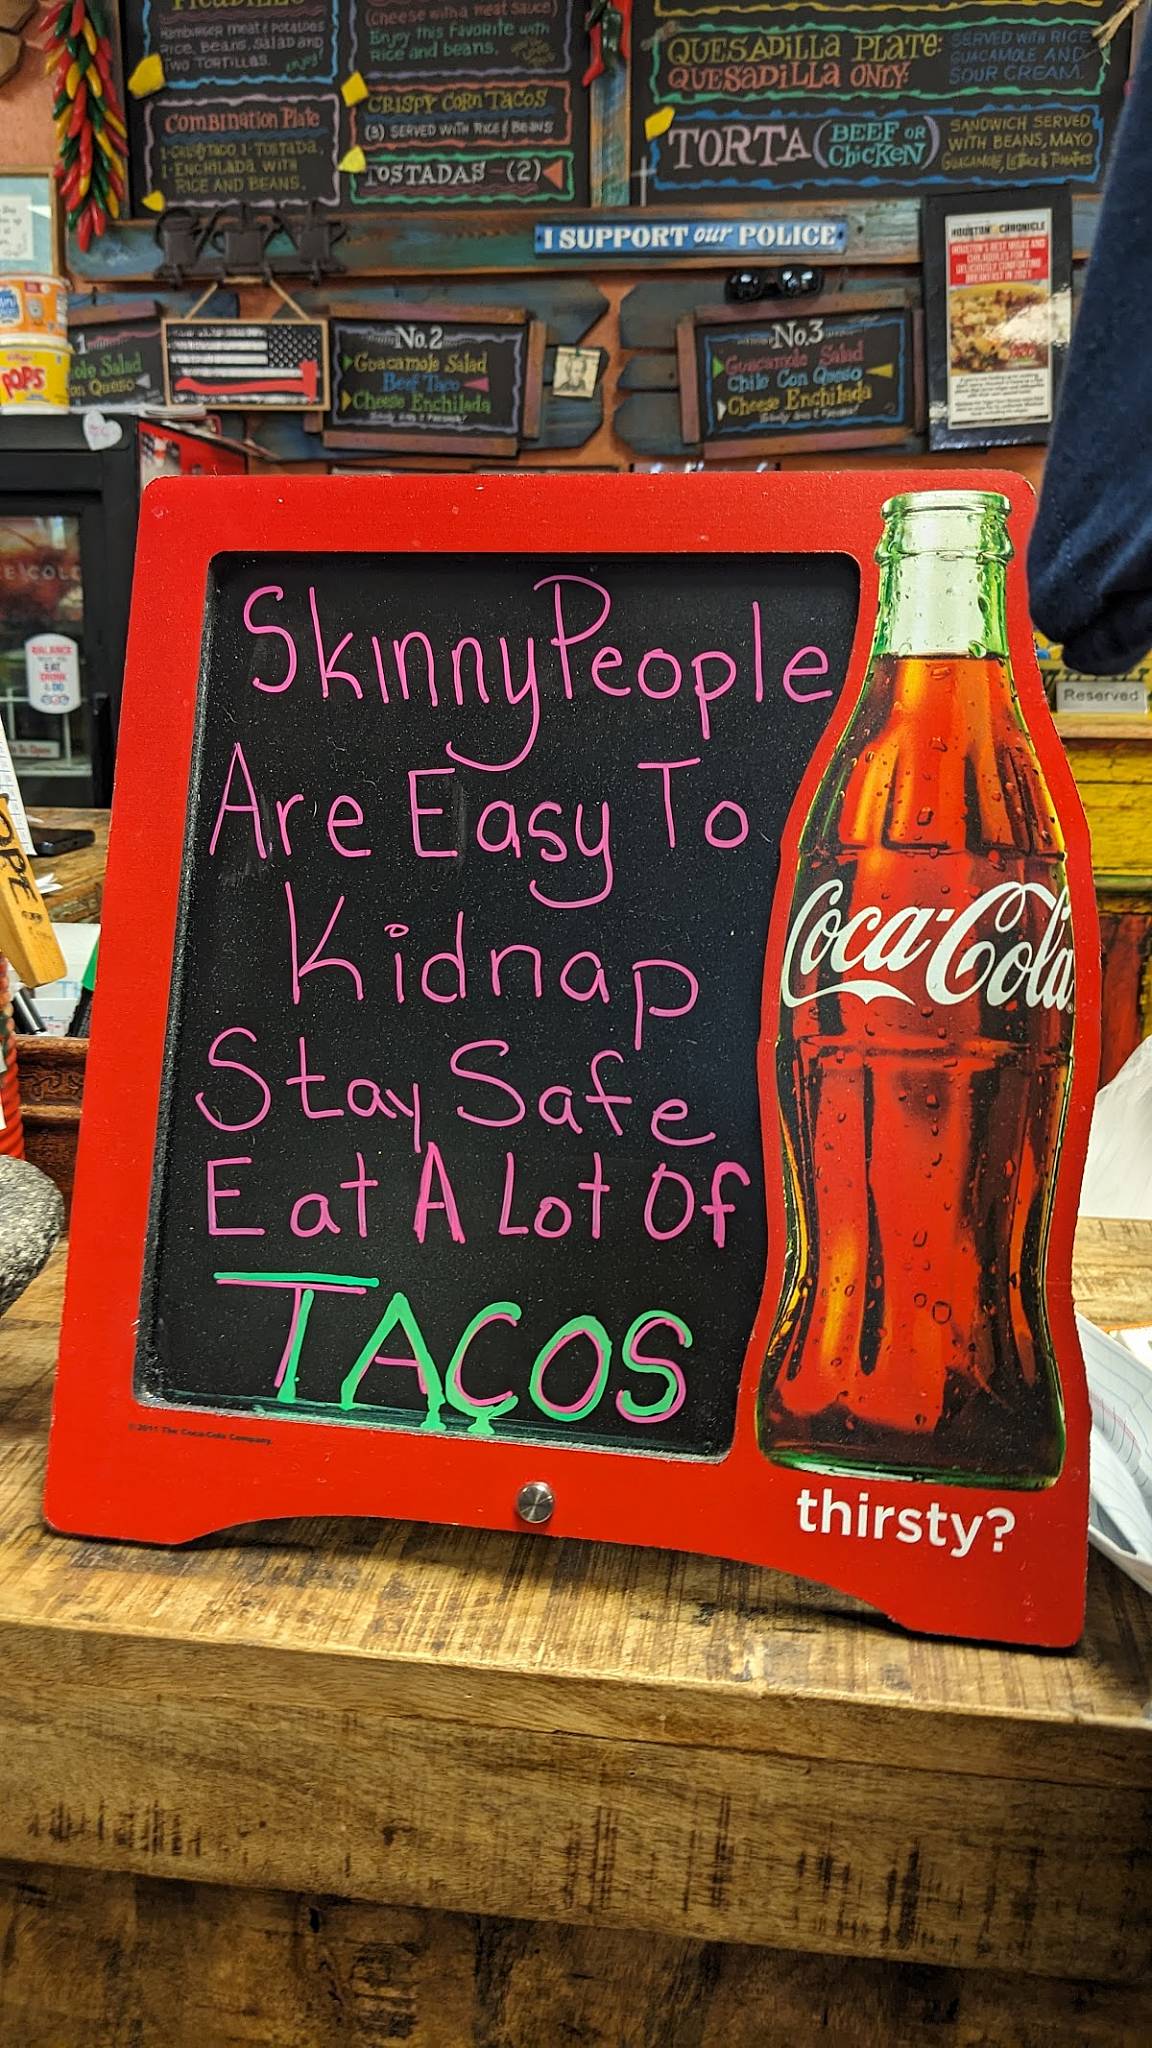 PICADILLO
Hamburger meat & potatoes
Rice, Beans, Salad and
Two Tortillas. enjoy!
Combination Plate
1-Crispy Taco 1-Tostada,
1-Enchilada with
Rice and Beans.
(Cheese with a meat sauce)
Enjoy this Favorite with
Rice and beans.
CRISPY CORN TACOS
(3) SERVED WITH RICE & BEANS
TOSTADAS - (2)
QUESADILLA PLATE:
QUESADILLA ONLY:
SERVED WITH RICE
GUACAMOLE AND
SOUR CREAM.
TORTA (BEEF OR
CHICKEN)
SANDWICH SERVED
WITH BEANS, MAYO
GUACAMOLE, LETTUCE & TOMATOES
I SUPPORT our POLICE
HOUSTON CHRONICLE
HOUSTON'S BEST MIGAS AND
CHILAQUILES FOR A
DELICIOUSLY COMFORTING
BREAKFAST IN 2021
1
Salad
Con Queso
No.2
Guacamole Salad
Beef Taco
Cheese Enchilada
No.3
Guacamole Salad
Chile Con Queso
Cheese Enchilada
POPS
BALANCE
EAT
DRINK
& DO
Reserved
Skinny People
Are Easy To
Kidnap
Stay Safe
Eat A Lot Of
TACOS
Coca-Cola
© 2011 The Coca-Cola Company.
thirsty?